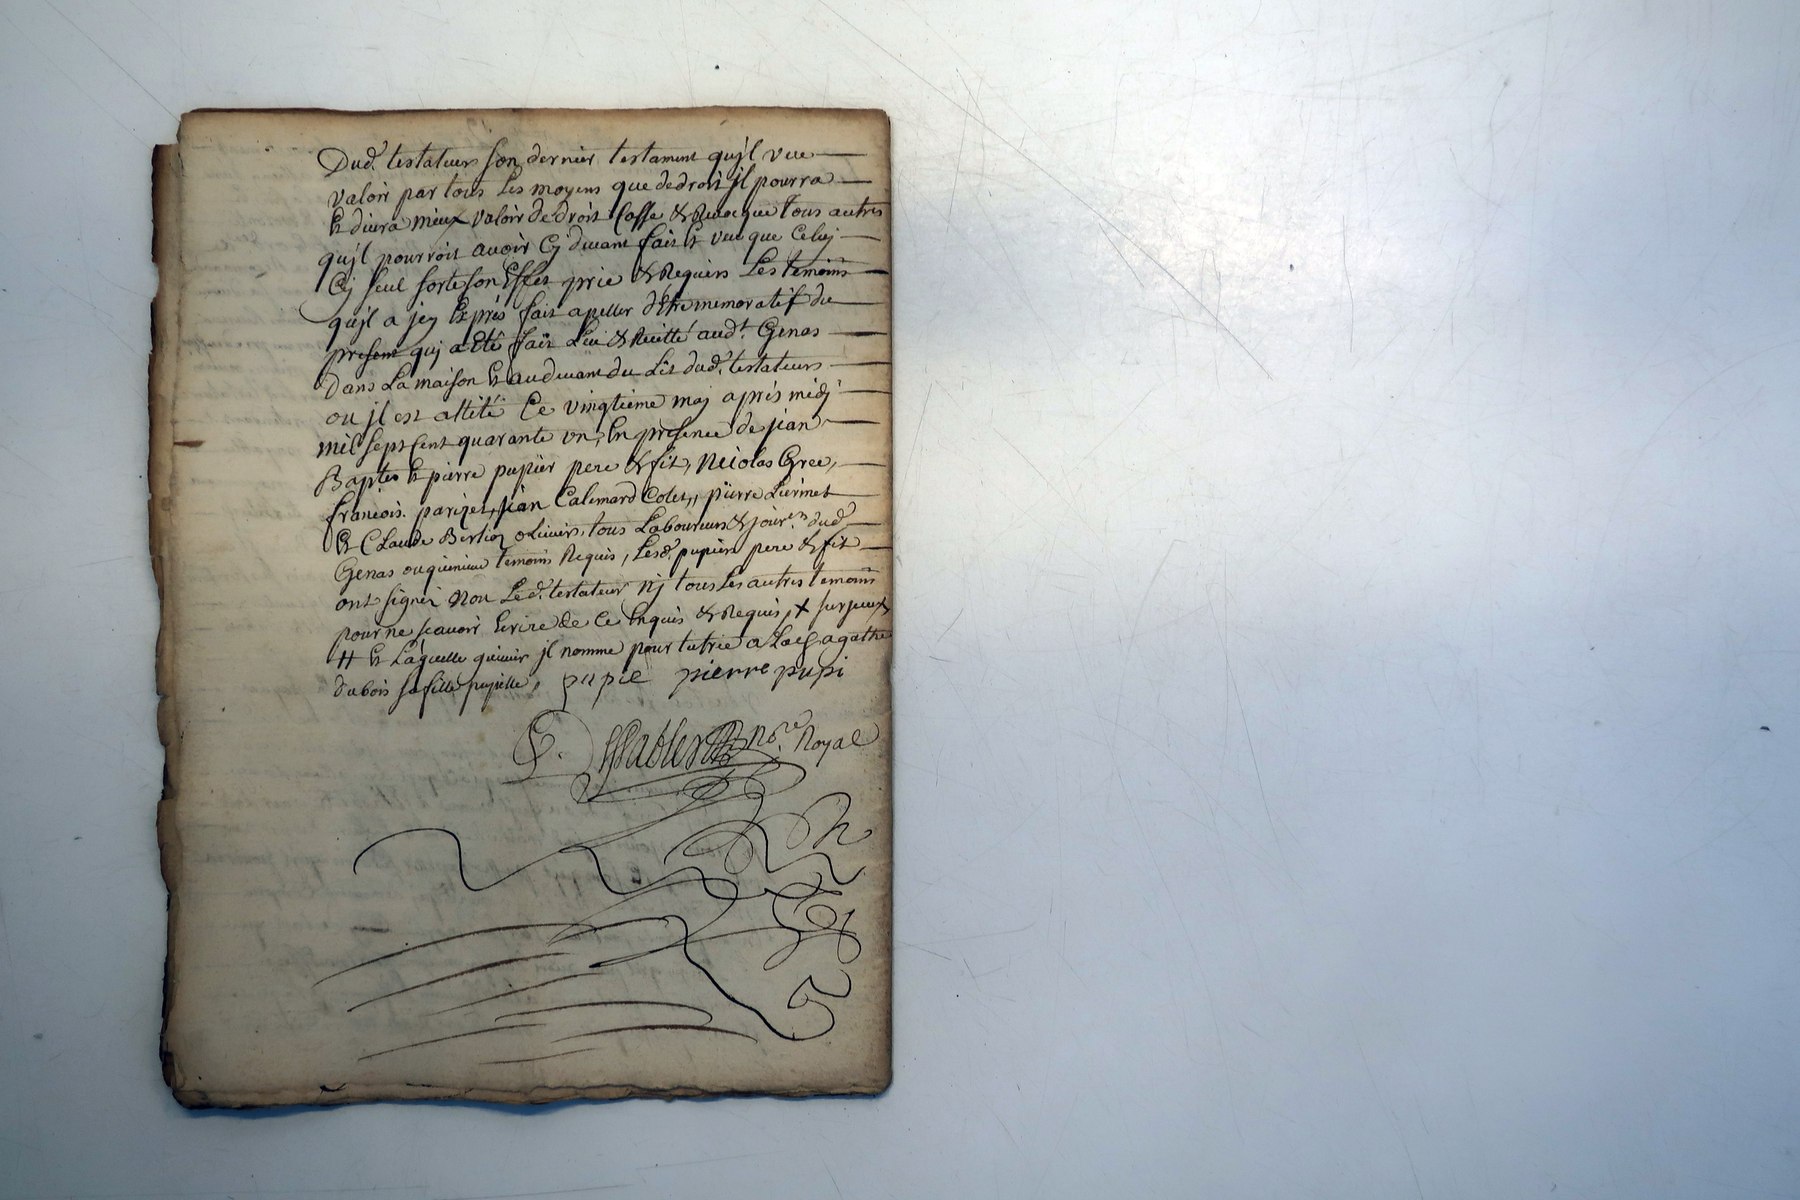 Dud.t testateur son dernier testament qu'jl veu
valoir par tous Les moyens que dedroit jl pourra
Et devra mieux valoir de droit Casse & Revoque tous autres
qu'jl pourroit avoir Cy devant fait Et veu que Celuy
Cy seul sorte son Effet prie & Requiers Les temoins
qu'jl a jcy Exprés fait apeller d'Etre memoratif du
present quj a Eté fait Leu & Recitté aud.t Genas
Dans La maison Et audevant du Lit dud.t testateur
ou jl est allité Ce vingtieme maj aprés midj
mil sept Cent quarante un, En presence de jean
Baptes Et pierre pupier pere & fils, Nicolas Gree,
francois parizet, jean Calemard Colet, pierre
Et Claude Berlioz olivier, tous Laboureurs & jour.rs dud.t
Genas temoins Requis, Lesd. pupiers pere & fils
ont signéz Non Le d.t testateur Nj tous Les autres temoins
pour ne scavoir Ecrire de Ce Enquis & Requis, X
H Et Laquelle jl nomme pour tutrice a agathe
dubois sa fille pupille, papie pierre pupi
No.re Royal